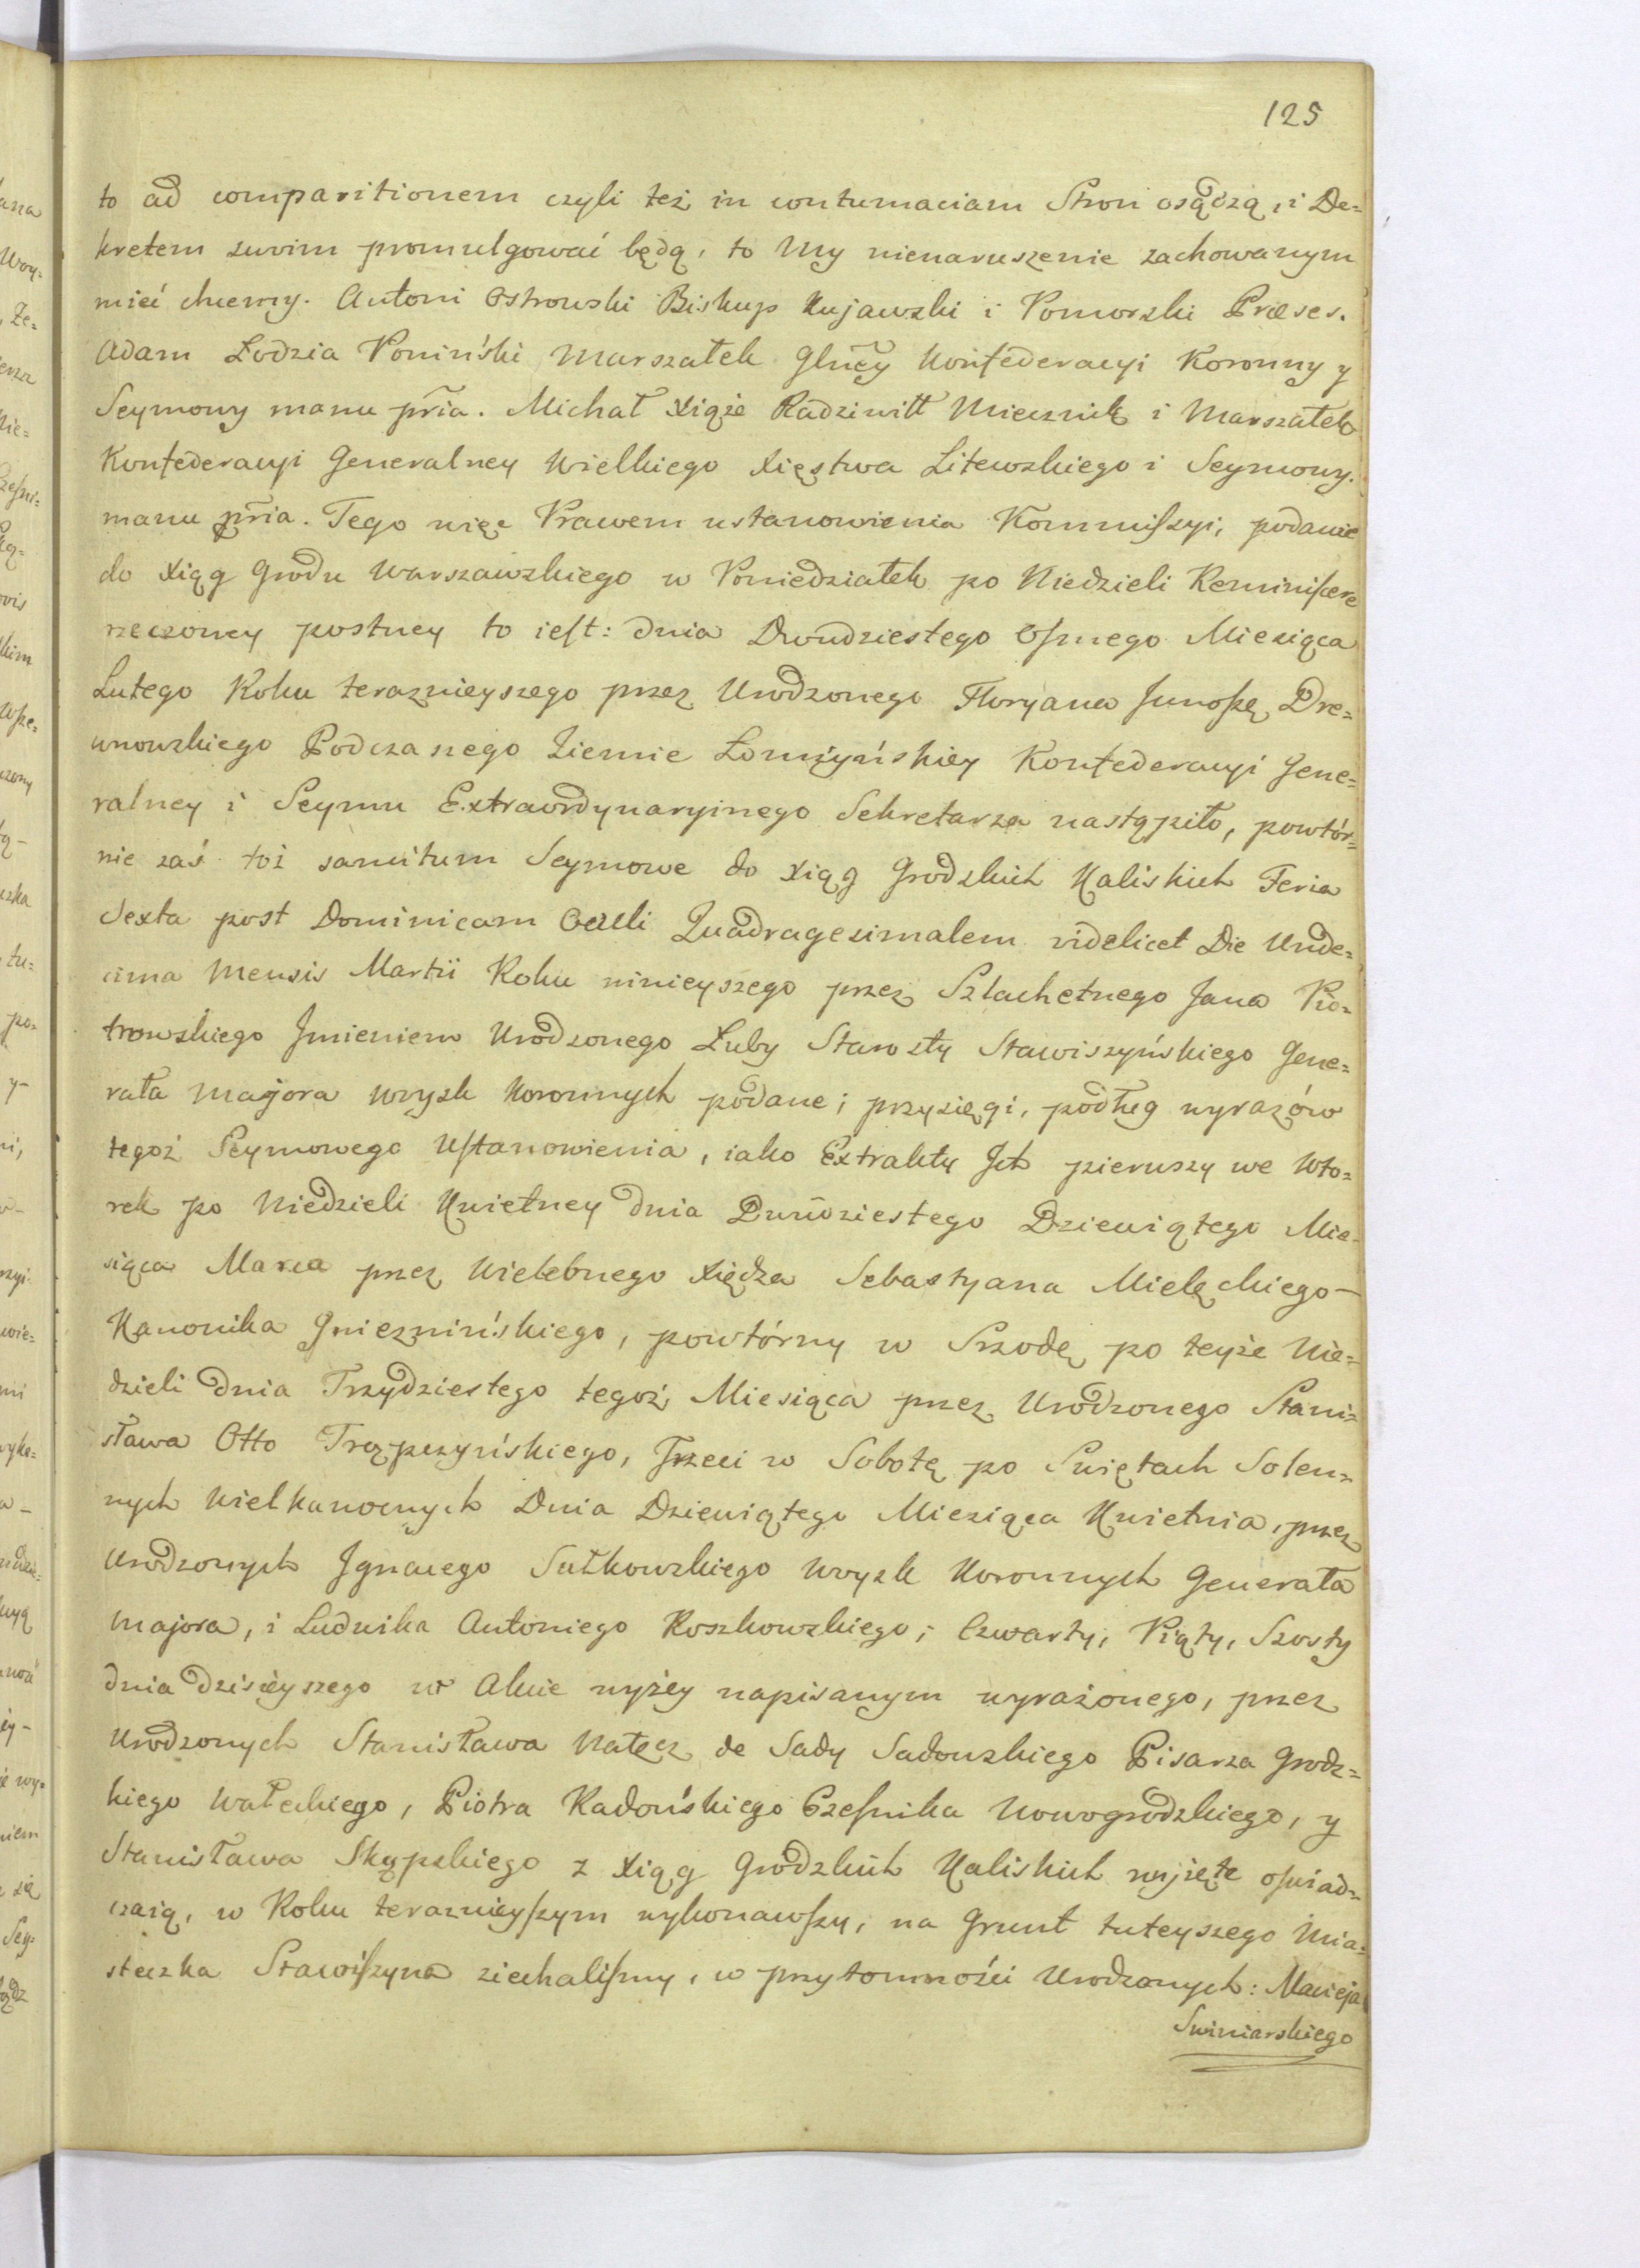 125
to ad comparitionem czyli też in contumaciam Stron osądzą, i De=
kretem swoim promulgować będą, to My nienaruszenie zachowanym
mieć chcemy. Antoni Ostrowski Biskup Kujawski i Pomorski Præses.
Adam Łodzia Poniński Marszałek Glnẽy Konfederacyi Koronny y
Seymowy manu pr̃ia. Michał Xiąże Radziwiłł Miecznik i Marszałek
Konfederacyi Generalney Wielkiego Xięstwa Litewskiego i Seymowy.
manu pr̃ia. Tego więc Prawem ustanowienia Kommiſzyi, podanie
do Xiąg Grodu Warszawskiego w Poniedziałek po Niedzieli Reminiſcere
rzeczoney postney to ieſt: dnia Dwudziestego Oſmego Miesiąca
Lutego Roku teraznieyszego przez Urodzonego Floryana Junoſzę Dre=
wnowskiego Podczaszego Ziemie Łomżyńskiey Konfederacyi Gene=
ralney i Seymu Extraordynaryinego Sekretarza nastąpiło, powtór=
nie zaś toż sancitum Seymowe do Xiąg Grodzkich Kaliskich Feria
Sexta post Dominicam Oculi Quadragesimalem videlicet Die Unde=
cima Mensis Martii Roku ninieyszego przez Szlachetnego Jana Pio=
trowskiego Jmieniem Urodzonego Łuby Starosty Stawiszyńskiego Gene=
rała Majora Woysk Koronnych podane; przysięgi, podług wyrazów
tegoż Seymowego Uſtanowienia, iako Extrakty Jch pierwszy we Wto=
rek po Niedzieli Kwietney dnia Dwudziestego Dziewiątego Mie=
siąca Marca przez Wielebnego Xiędza Sebastyana Mielęckiego –
Kanonika Gnieznińskiego, powtórny w Srzodę po teyże Nie=
dzieli dnia Trzydziestego tegoż Miesiąca przez Urodzonego Stani=
sława Otto Trąpczyńskiego, Trzeci w Sobotę po Swiętach Solen=
nych Wielkanocnych Dnia Dziewiątego Miesiąca Kwietnia, przez
Urodzonych Jgnacego Sułkowskiego Woysk Koronnych Generała
Majora, i Ludwika Antoniego Koszkowskiego; Czwarty, Piąty, Szosty
dnia dzisieyszego w Akcie wyżey napisanym wyrażonego, przez
Urodzonych Stanisława Nałęcz de Sady Sadowskiego Pisarza Grodz=
kiego Wałeckiego, Piotra Radońskiego Czeſnika Nowogrodzkiego, y
Stanisława Skąpskiego z Xiąg Grodzkich Kaliskich wyjęte oſwiad=
czaią, w Roku teraznieyſzym wykonawſzy, na Grunt tuteyszego Mia=
steczka Stawiſzyna ziechaliſmy, w przytomności Urodzonych: Macieja
Swiniarskiego